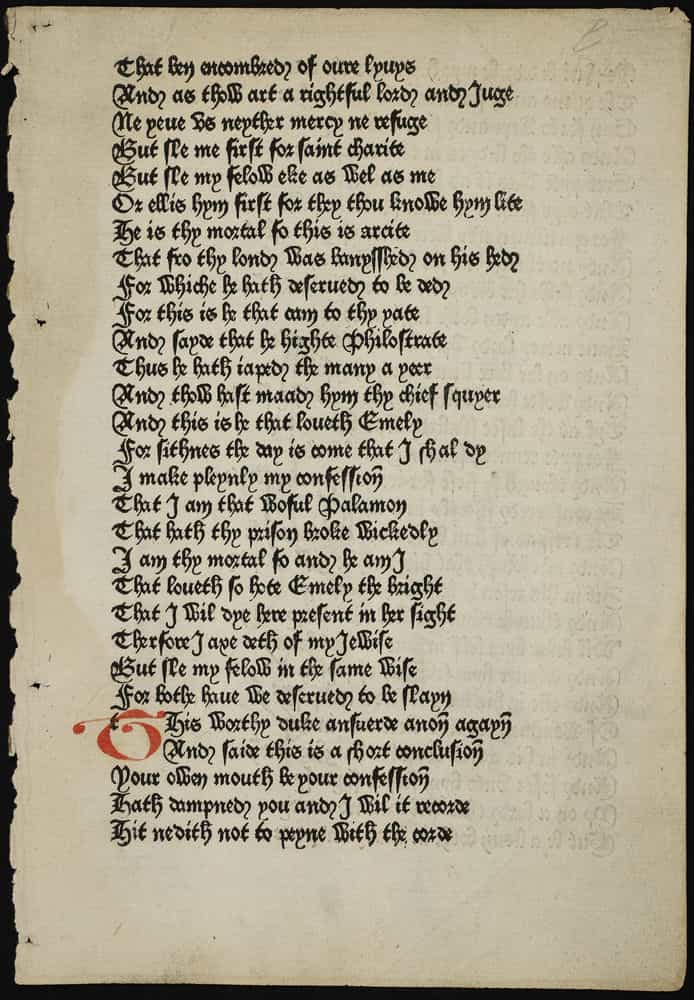 That ben encombred of oure lyuys
And as thow art a rightful lord and Juge
Ne yeue vs neyther mercy ne refuge
But sle me first for saint charite
But sle my felow eke as wel as me
Or ellis hym first for they thou knowe hym lite
He is thy mortal fo this is arcite
That fro thy lond was banysshed on his hed
For whiche he hath deserued to be ded
For this is he that cam to thy yate
And sayde that he highte Philostrate
Thus he hath iaped the many a yeer
And thow hast maad hym thy chief squyer
And this is he that loueth Emely
For sithnes the day is come that I shal dy
I make pleynly my confession̄
That I am that woful Palamon
That hath thy prison broke wickedly
I am thy mortal fo and he am I
That loueth so hote Emely the bright
That I wil dye here present in her sight
Therfore I axe deth of my Jewise
But sle my felow in the same wise
For bothe haue we deserued to be slayn
This worthy duke ansuerde anon̄ agayn̄
And saide this is a short conclusion̄
Your owen mouth be your confession̄
Hath dampned you and I wil it recorde
Hit nedith not to peyne with the corde